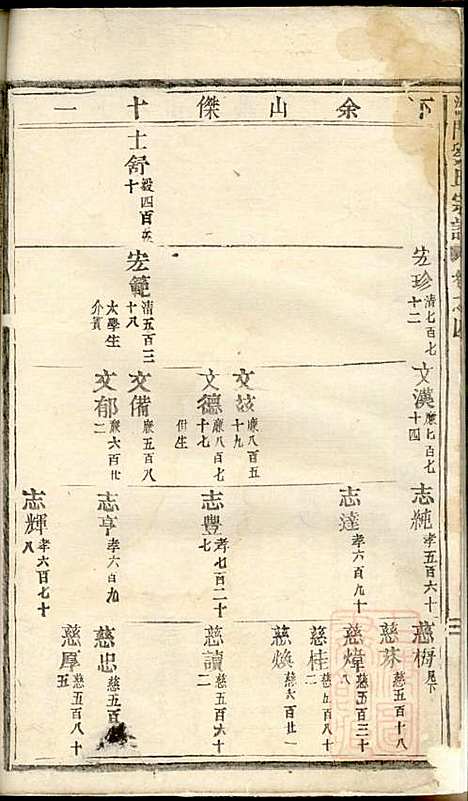 下余山傑十一
士舒
毅四百
十
宏珍
清七百七
十二
宏範
清五百三
十八
大學生
介賓
文漢
廉七百七
十四
文
廉八百五
十九
文德
廉八百七
十七
文備
廉五百八
文郁
廉六百廿
二
志純
孝五百六十
志達
孝六百九十
志豐
孝七百二十
七
志亨
孝六百九
志輝
孝六百七十
八
慈梅
見下
慈
慈五百十八
慈煒
慈五百三十
八
慈桂
慈五百八十
二
慈煥
慈六百廿一
慈讀
慈五百六十
二
慈忠
慈五百
慈厚
慈五百八十
五